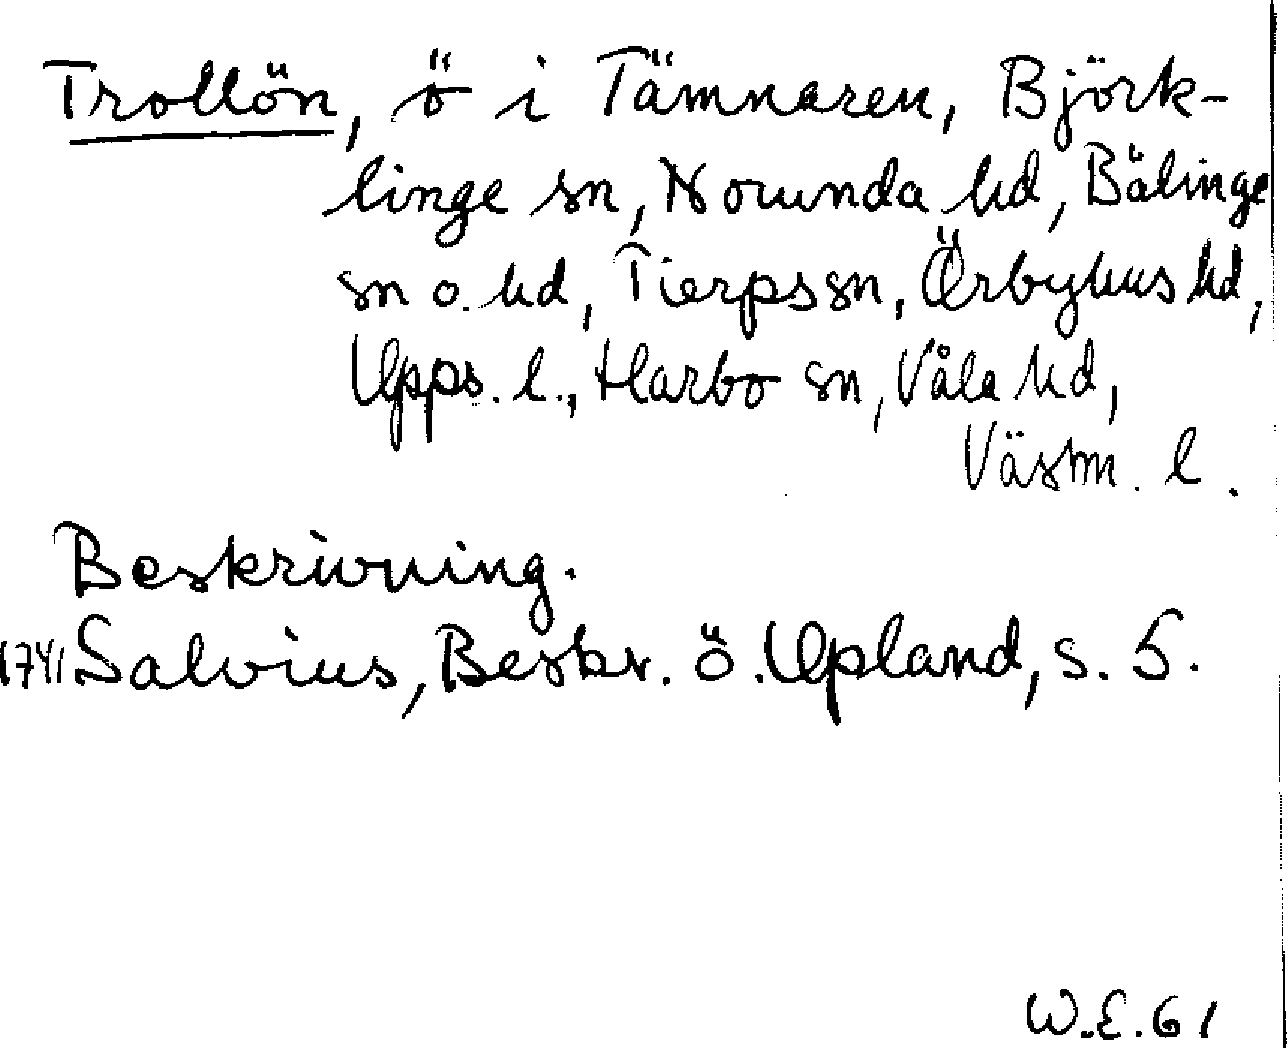 Trollön, ö i Tämnaren, Björk-
linge sn, Norunda hd, Bälinge
sn o. hd, Tierps sn, Örbyhus hd,
Upps. l., Harbo sn, Våla hd,
Västm. l.
Beskrivning.
1741 Salvius, Beskr. ö. Upland, s. 5.
W.E. 61